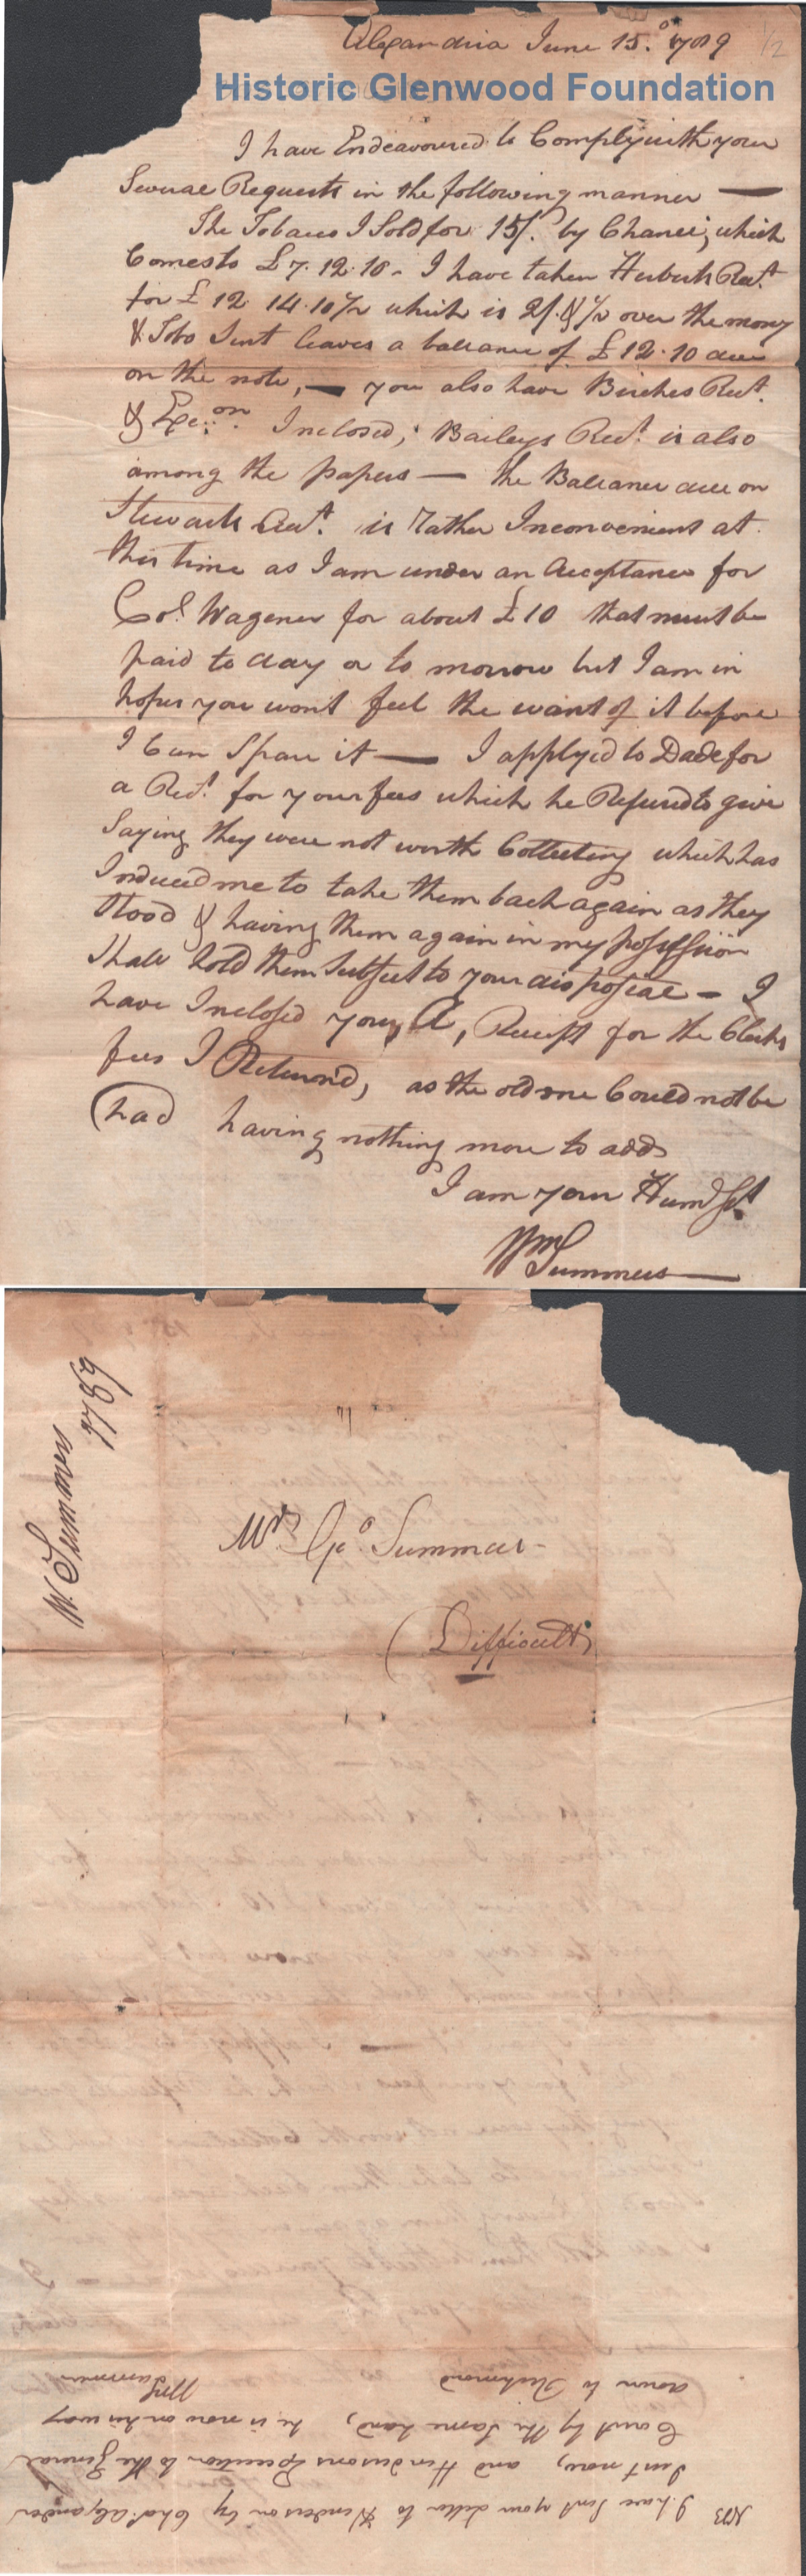 Alexandria June 15.º 1789
1/2
Historic Glenwood Foundation
I have Endeavoured to Comply with your
Several Requests in the following manner —
The Tobacco I Sold for 15/. by Chance, which
Comes to £7.12.10 - I have taken Herberts Rect.
for £12.14.10½ which is 2/.8½ over the money
& Tobo Sent leaves a ballance of £12.10 due
on the note, — you also have Birches Rect.
& Exeon. Inclosed, Baileys Rect. is also
among the papers — the Ballance due on
Stewarts Acct. is Rather Inconvenient at
this time as I am under an Acceptance for
Col. Wagener for about £10 that must be
paid to day or to morrow but I am in
hopes you wont feel the want of it before
I Can Spare it — I applyed to Dade for
a Rect. for your fees which he Refused to give
Saying they were not worth Collecting which has
Induced me to take them back again as they
Stood & having them again in my possession
Shall hold them Subject to your disposeal - I
have Inclosed you, A, Receipt for the Clerks
fees I Returnd, as the old one Could not be
had having nothing more to add
I am your Humb Sert
Wm Summers
W. Summers
1789
Mr. Go. Summers
(Difficult)
NB I have Sent your letter to Henderson by Chas. Alexander
Just now, and Hendersons Execution to the General
Court by the Same hand, he is now on his way
down to Richmond
Wm Summers